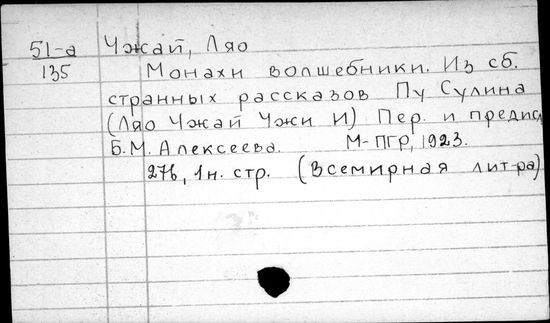 51-а Чжай, Ляо
135 Монахи волшебники. Из сб.
странных рассказов Пу Сулина
(Ляо Чжай Чжи И) Пер. и предис
Б.М. Алексеева. М-ПГР, 1923.
276, 1н. стр. (Всемирная лит-ра)